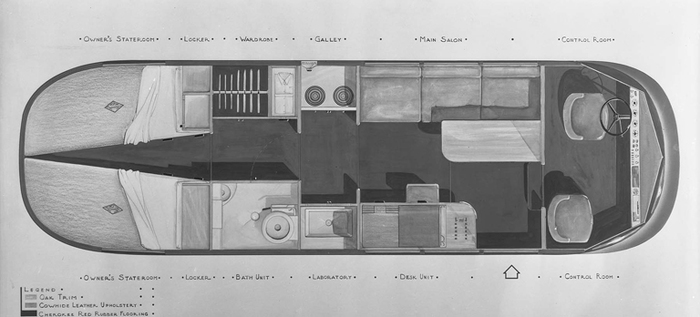 • Owner's Stateroom • • Locker • • • Wardrobe • • • Galley • • • Main Salon • • • Control Room •
• Owner's Stateroom • • Locker • • Bath Unit • • • Laboratory • • • Desk Unit • • • Control Room •
Legend •
Oak Trim •
Cowhide Leather Upholstery •
Cherokee Red Rubber Flooring •